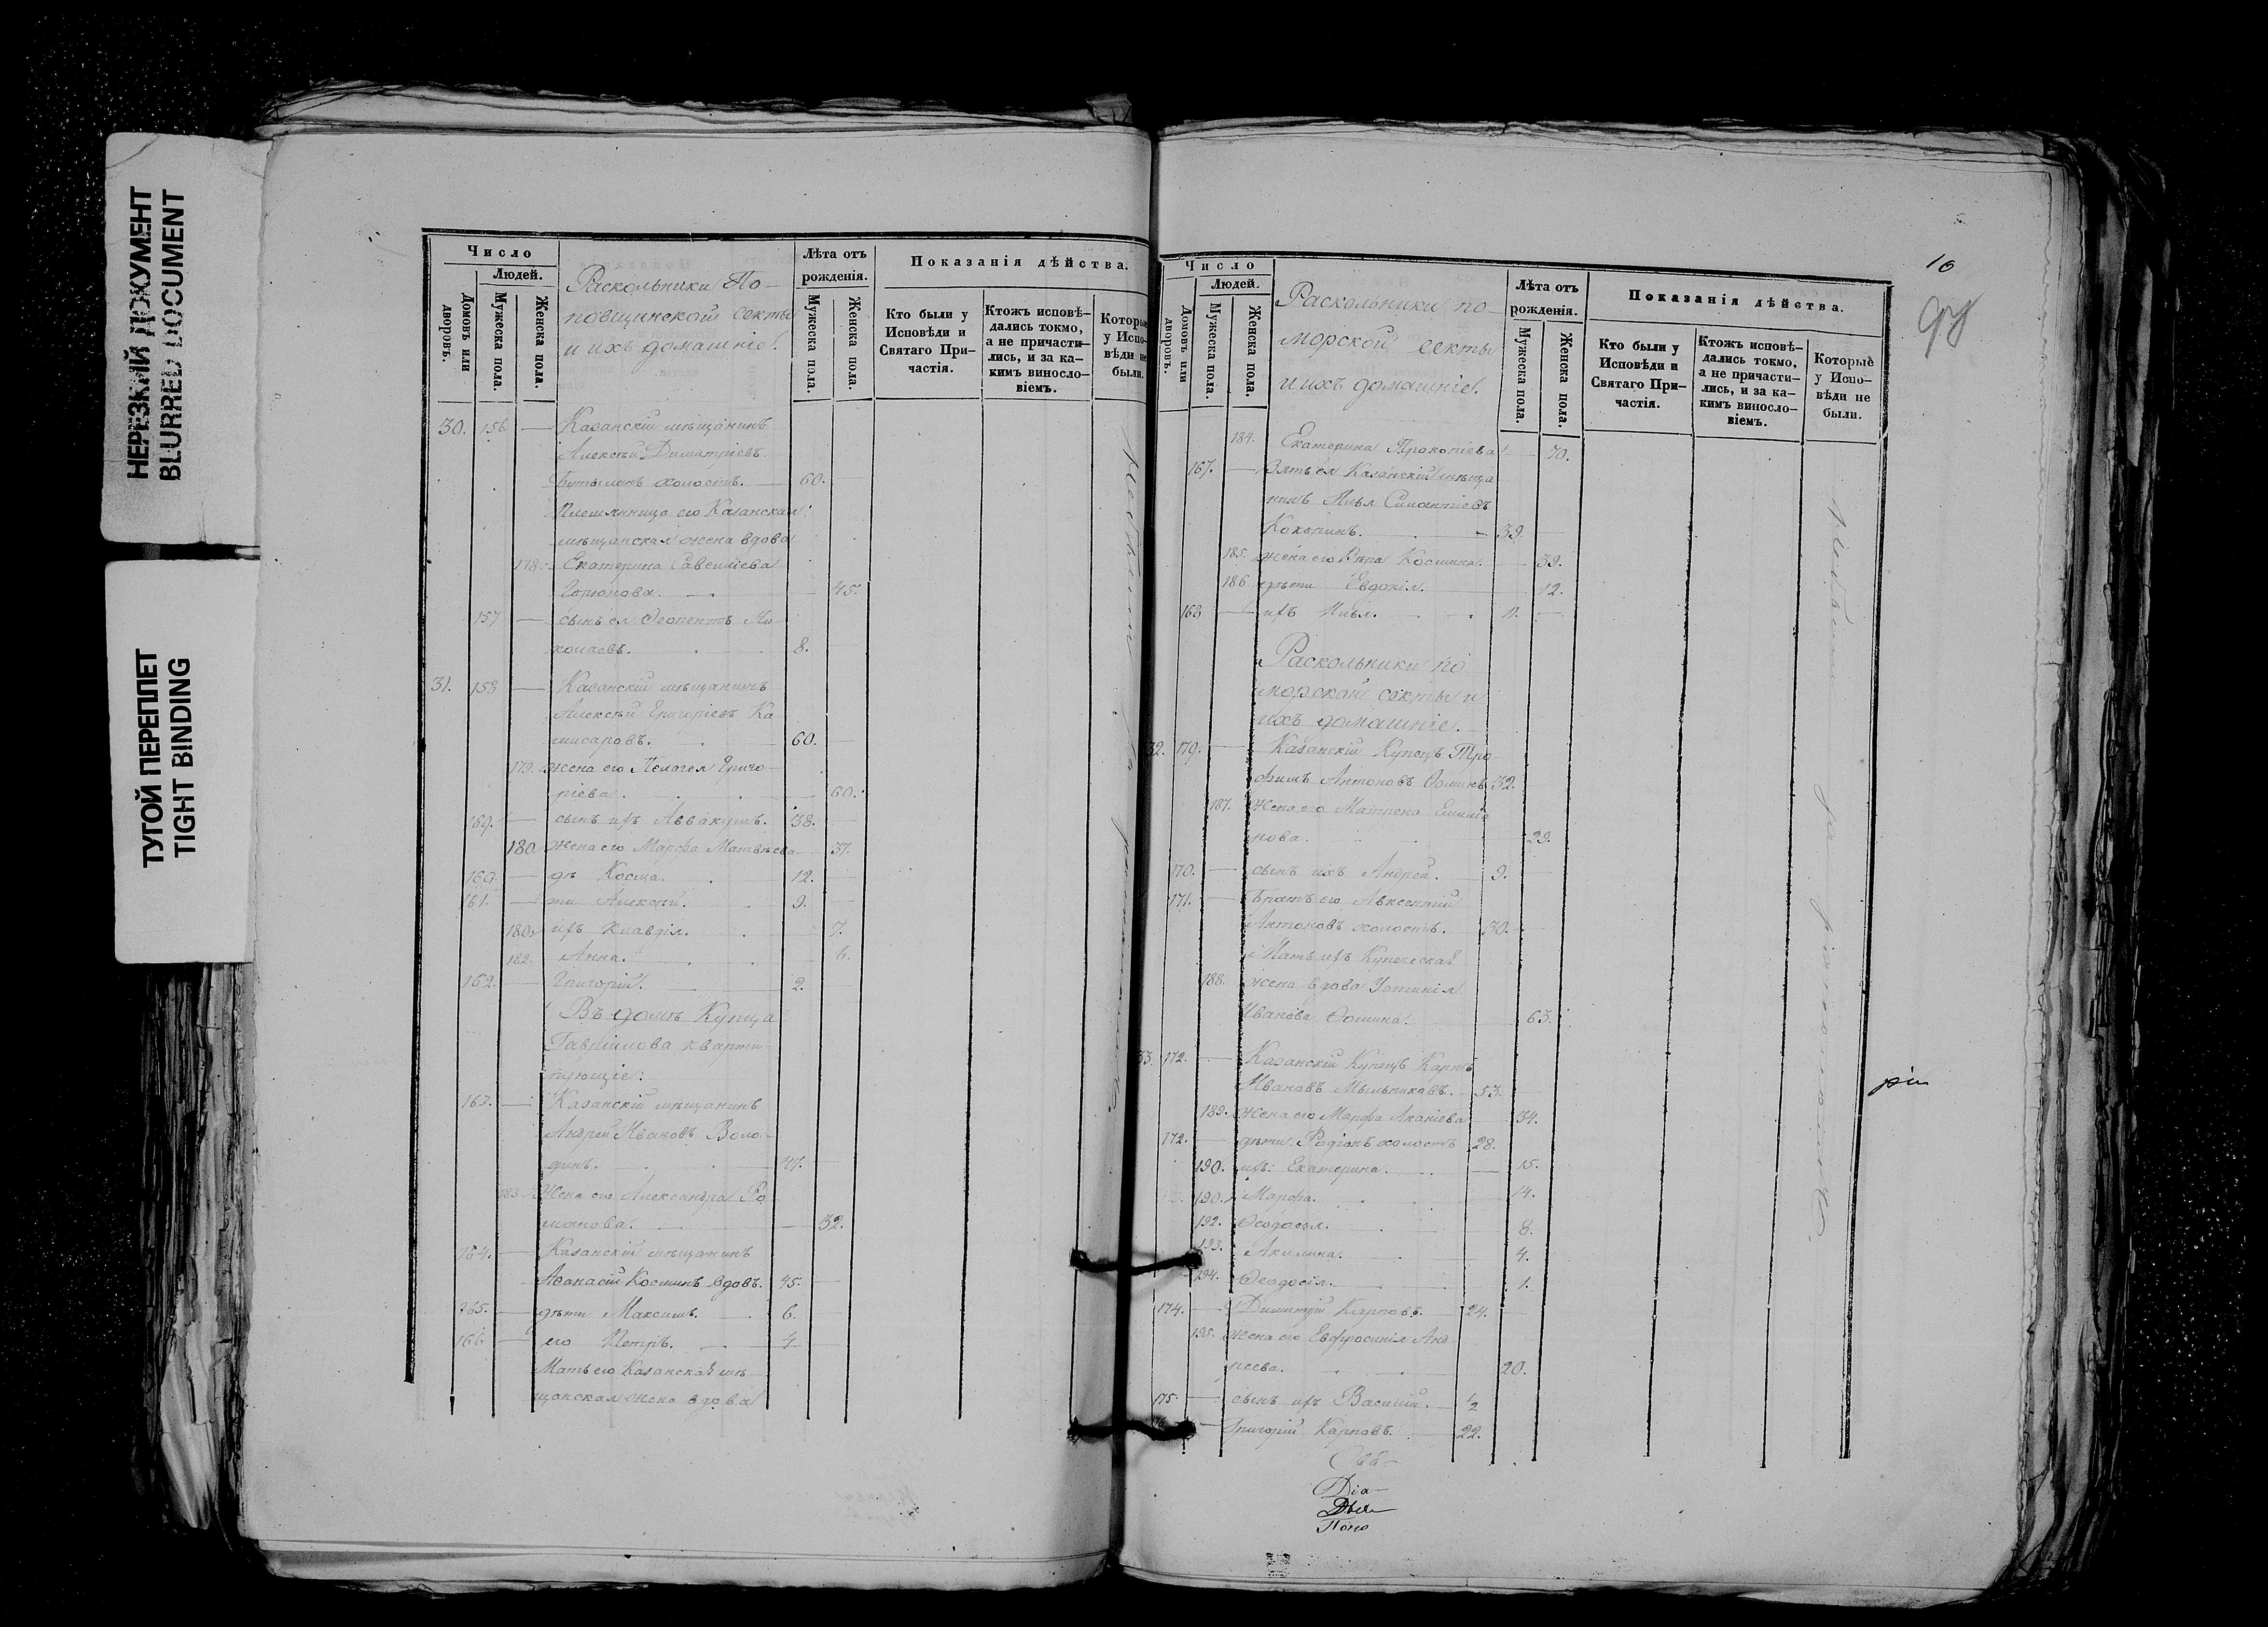 НЕРЕЗКИЙ ДОКУМЕНТ
BLURRED DOCUMENT
ТУГОЙ ПЕРЕПЛЕТ
TIGHT BINDING
Число
Людей.
Домовъ или дворовъ.
Мужеска пола.
Женска пола.
Раскольники По-
повщинской секты
и ихъ домашніе.
Лѣта отъ рожденія.
Мужеска пола.
Женска пола.
Показанія дѣйства.
Кто были у Исповѣди и Святаго При-частія.
Ктожъ исповѣ-дались токмо, а не причасти-лись, и за ка-кимъ винословіемъ.
Которые у Испо-вѣди не были.
30. 156 — Казанскій мѣщанинъ
Алексѣй Димитріевъ
холостъ. 60.
Племянница его Казанская
мѣщанская жена вдова
178. Екатерина Савеліева
45.
157 — сынъ ея Ни-
колаевъ. 8.
31. 158 — Казанскій мѣщанинъ
Алексѣй Григоріевъ Ка
мисаровъ. 60.
179. жена его Пелагея Григо-
ріева. 60.
169. — сынъ ихъ Аввакумъ. 38.
180 жена его Марѳа Матвѣева 37.
160. — дѣ Косма. 12.
161. — ти Алексѣй. 9.
180. ихъ Клавдія. 7.
182. Анна. 6.
162. — Григорій. 2.
Въ домѣ Купца
Гаврилова кварти-
рующіе:
163. — Казанскій мѣщанинъ
Андрей Ивановъ Воло-
динъ. 47.
183 Жена его Александра Ро
манова. 32.
164. — Казанскій мѣщанинъ
Аѳанасій Косминъ вдовъ. 45.
165. — дѣти Максимъ. 6.
166 — его Петръ. 4
Мать его Казанская мѣ
щанская жена вдова
Не были за раскольничествомъ.
10
Число
Людей.
Домовъ или дворовъ.
Мужеска пола.
Женска пола.
Раскольники по-
морской секты
и ихъ домашніе.
Лѣта отъ рожденія.
Мужеска пола.
Женска пола.
Показанія дѣйства.
Кто были у Исповѣди и Святаго При-частія.
Ктожъ исповѣ-дались токмо, а не причасти-лись, и за ка-кимъ винословіемъ.
Которые у Испо-вѣди не были.
184. Екатерина Прокопіева 70.
167. — Зять ея Казанскій мѣща
нинъ Илья
Кокоринъ. 39.
185. жена его Вѣра Космина. 39.
186 дѣти Евдокія. 12.
168 — ихъ Илья.
Раскольники по
морской секты и
ихъ домашніе.
32. 179. — Казанскій Купецъ Тро-
фимъ Антоновъ Ѳоминъ 32.
187. Жена его Матрена Емилiа
нова. 29.
170. — сынъ ихъ Андрей. 9.
171. — Братъ его Авксентій
Антоновъ холостъ. 30.
Мать ихъ Купеческая
188. жена вдова Устинія
Иванова Ѳомина. 63.
33. 172. — Казанскій Купецъ Карпъ
Ивановъ Мыльниковъ. 53.
189. Жена его Марѳа Ананіева 54.
172. — дѣти Родіонъ холостъ 28.
190. ихъ: Екатерина. 15.
190. Марѳа. 14.
192. Ѳеодосія. 8.
193. Акилина. 4.
194. Ѳеодосія. 1.
174. — Димитрій Карповъ. 24.
195. Жена его Евфросинія Анд
реева. 20.
175. — сынъ ихъ Василій. 1/2
Григорій Карповъ. 22.
Не были за раскольничествомъ.
Діа-